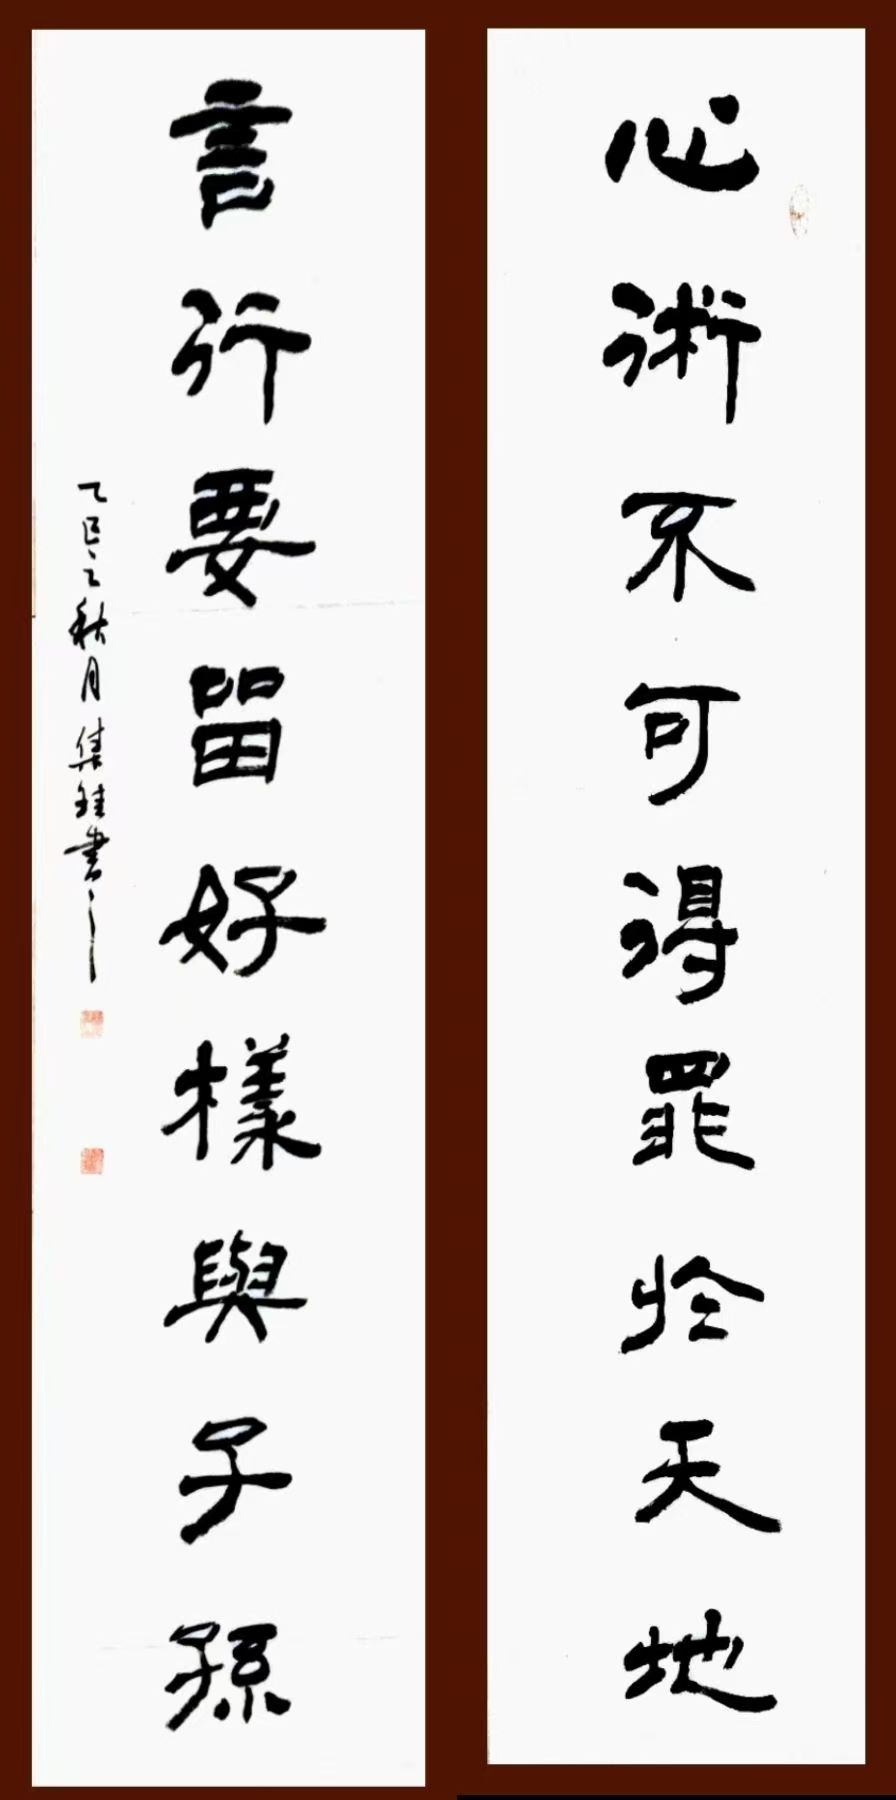 心術不可得罪於天地
言行要留好樣與子孫
乙巳之秋月集鉎書